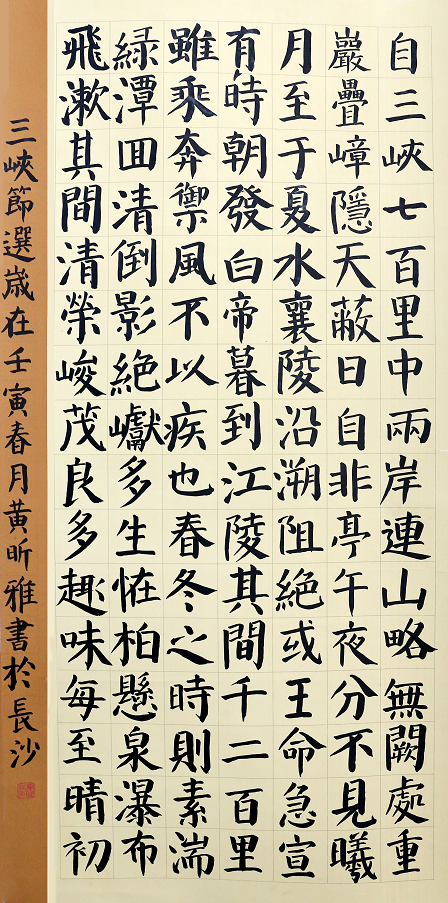 自三峽七百里中兩岸連山略無闕處重
巖疊嶂隱天蔽日自非亭午夜分不見曦
月至于夏水襄陵沿溯阻絕或王命急宣
有時朝發白帝暮到江陵其間千二百里
雖乘奔禦風不以疾也春冬之時則素湍
綠潭回清倒影絕巘多生恠柏懸泉瀑布
飛漱其間清榮峻茂良多趣味每至晴初
三峽節選歲在壬寅春月黃昕雅書於長沙